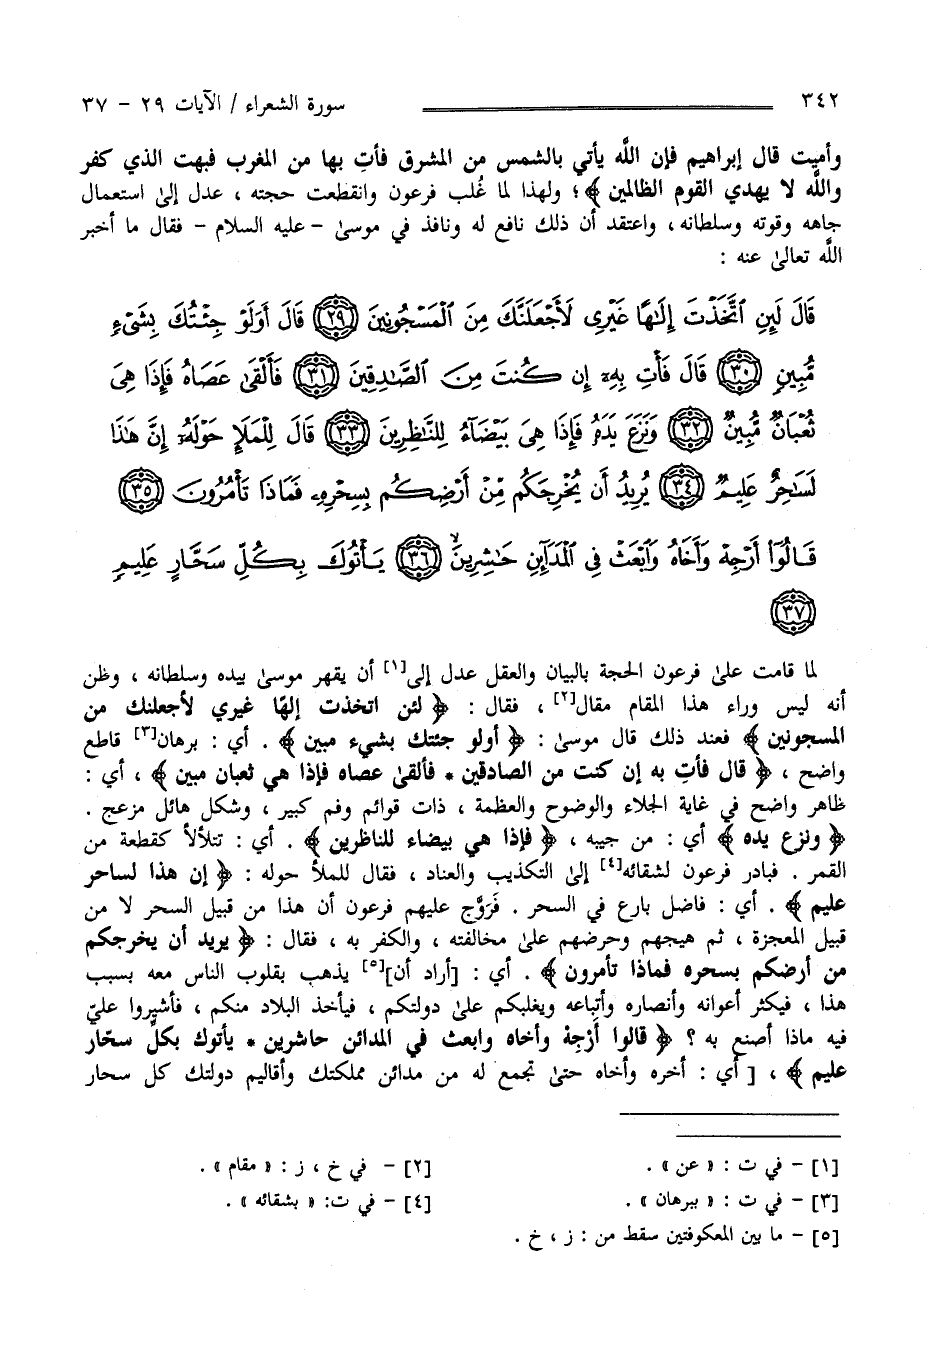 ٣٤٢ سورة الشعراء / الآيات ٢٩ - ٣٧
وأميت قال إبراهيم فإن اللَّه يأتي بالشمس من المشرق فأت بها من المغرب فبهت الذي كفر
واللَّه لا يهدي القوم الظالمين ﴾؛ ولهذا لما غُلب فرعون وانقطعت حجته ، عدل إلىٰ استعمال
جاهه وقوته وسلطانه، واعتقد أن ذلك نافع له ونافذ في موسىٰ - عليه السلام - فقال ما أخبر
اللَّه تعالىٰ عنه :
قَالَ لَئِنِ ٱتَّخَذْتَ إِلَٰهًا غَيْرِى لَأَجْعَلَنَّكَ مِنَ ٱلْمَسْجُونِينَ ٢٩ قَالَ أَوَلَوْ جِئْتُكَ بِشَىْءٍ
مُّبِينٍ ٣٠ قَالَ فَأْتِ بِهِۦٓ إِن كُنتَ مِنَ ٱلصَّٰدِقِينَ ٣١ فَأَلْقَىٰ عَصَاهُ فَإِذَا هِىَ
ثُعْبَانٌ مُّبِينٌ ٣٢ وَنَزَعَ يَدَهُۥ فَإِذَا هِىَ بَيْضَآءُ لِلنَّٰظِرِينَ ٣٣ قَالَ لِلْمَلَإِ حَوْلَهُۥٓ إِنَّ هَٰذَا
لَسَٰحِرٌ عَلِيمٌ ٣٤ يُرِيدُ أَن يُخْرِجَكُم مِّنْ أَرْضِكُم بِسِحْرِهِۦ فَمَاذَا تَأْمُرُونَ ٣٥
قَالُوٓا۟ أَرْجِهْ وَأَخَاهُ وَٱبْعَثْ فِى ٱلْمَدَآئِنِ حَٰشِرِينَ ٣٦ يَأْتُوكَ بِكُلِّ سَحَّارٍ عَلِيمٍ
٣٧
لما قامت علىٰ فرعون الحجة بالبيان والعقل عدل إلى[١] أن يقهر موسىٰ بيده وسلطانه ، وظن
أنه ليس وراء هذا المقام مقال[٢] ، فقال : ﴿ لئن اتخذت إلهًا غيري لأجعلنك من
المسجونين ﴾ فعند ذلك قال موسىٰ : ﴿ أولو جئتك بشيء مبين ﴾ . أي : برهان[٣] قاطع
واضح ، ﴿ قال فأت به إن كنت من الصادقين * فألقىٰ عصاه فإذا هي ثعبان مبين ﴾ ، أي :
ظاهر واضح في غاية الجلاء والوضوح والعظمة ، ذات قوائم وفم كبير ، وشكل هائل مزعج .
﴿ ونزع يده ﴾ أي : من جيبه ، ﴿ فإذا هي بيضاء للناظرين ﴾ . أي : تتلألأ كقطعة من
القمر . فبادر فرعون لشقائه[٤] إلىٰ التكذيب والعناد ، فقال للملأ حوله : ﴿ إن هذا لساحر
عليم ﴾ . أي : فاضل بارع في السحر . فَرَوَّج عليهم فرعون أن هذا من قبيل السحر لا من
قبيل المعجزة ، ثم هيجهم وحرضهم علىٰ مخالفته ، والكفر به ، فقال : ﴿ يريد أن يخرجكم
من أرضكم بسحره فماذا تأمرون ﴾ . أي : [أراد أن][٥] يذهب بقلوب الناس معه بسبب
هذا ، فيكثر أعوانه وأنصاره وأتباعه ويغلبكم علىٰ دولتكم ، فيأخذ البلاد منكم ، فأشيروا عليّ
فيه ماذا أصنع به ؟ ﴿ قالوا أَرْجِهْ وأخاه وابعث في المدائن حاشرين * يأتوك بكلّ سحّار
عليم ﴾ ، [ أي : أخره وأخاه حتىٰ تجمع له من مدائن مملكتك وأقاليم دولتك كل سحار
[١] - في ت : « عن » . [٢] - في خ ، ز : « مقام » .
[٣] - في ت : « ببرهان » . [٤] - في ت: « بشقائه » .
[٥] - ما بين المعكوفتين سقط من : ز ، خ .